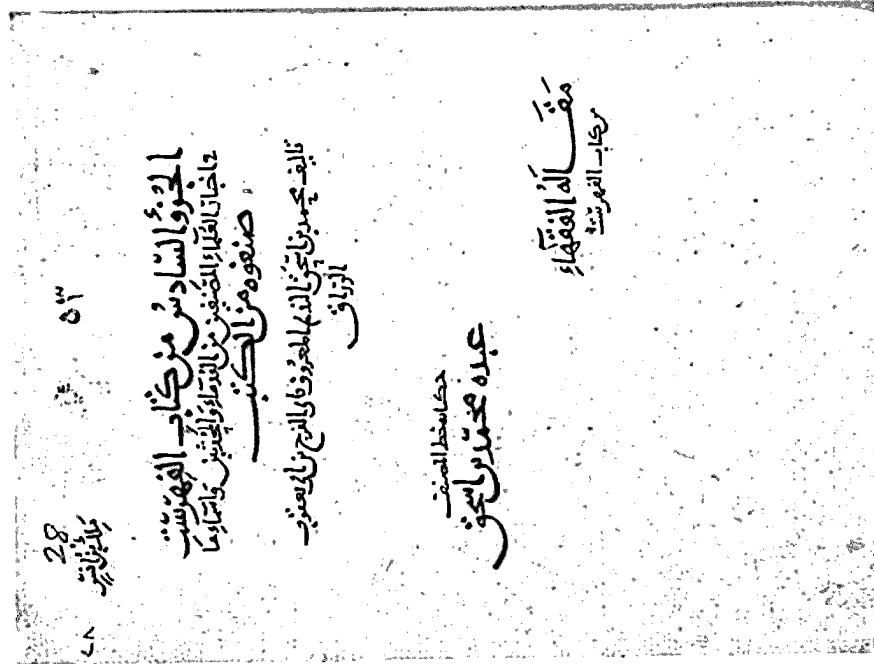 28
٢٨
مالك بن انس
٥٣
الجزؤ السادس من كتاب الفهرست
في اخبار العلماء المصنفين من القدماء والمحدثين واسماء ما
صنفوه من الكتب
تاليف محمد بن اسحق النديم المعروف بابي الفرج بن ابي يعقوب
الوراق
حكاية خط المصنف
عبده محمد بن اسحق
مقالة الفقهاء
من كتاب الفهرست